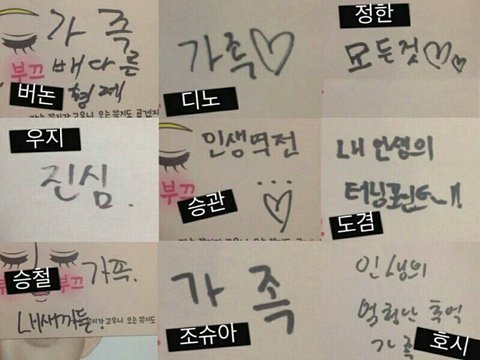 가족
부끄
배다른
버논
형제
가족♡
디노
정한
모든것♡♡
우지
진심.
인생역전
부끄
...
승관
♡
내 인생의
터닝포인트~!!
도겸
승철
부끄
가족.
내새끼들
가족
조슈아
인생의
엄청난 축억
가족
호시